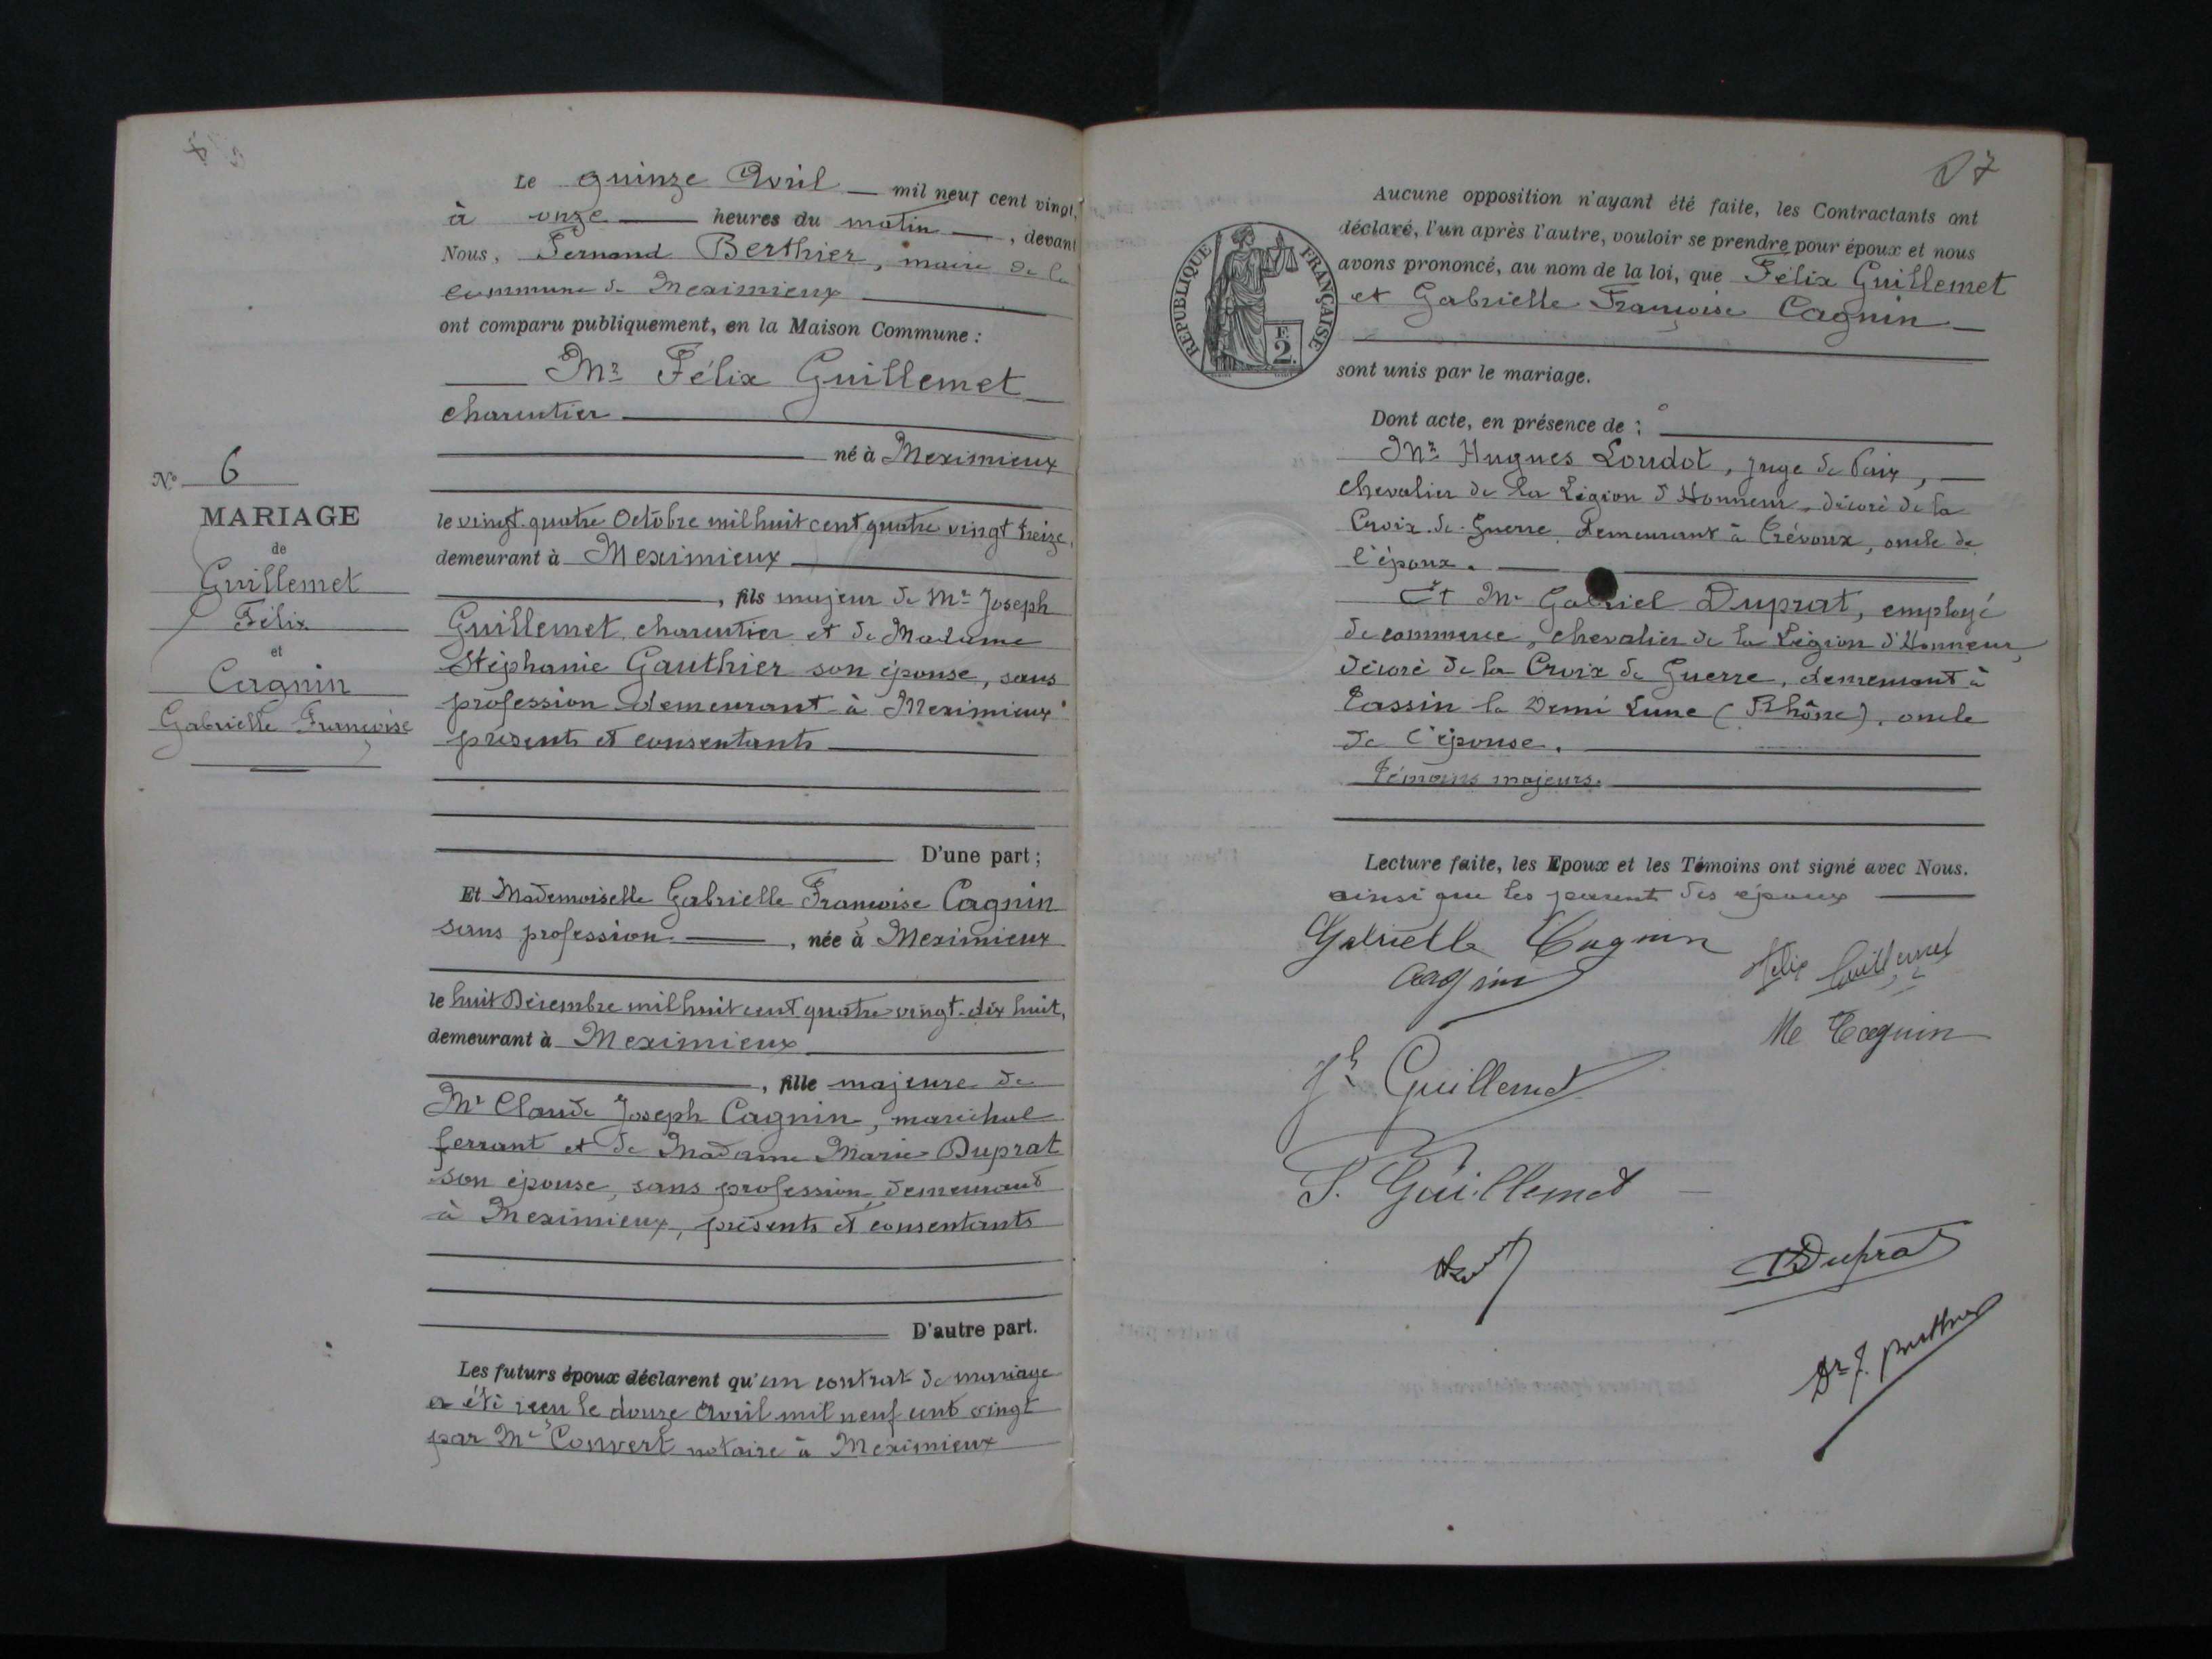 Le quinze Avril mil neuf cent vingt,
à onze heures du matin, devant
Nous, Fernand Berthier, maire de la
commune de Meximieux
ont comparu publiquement, en la Maison Commune :
Mr Félix Guillemet
charcutier
né à Meximieux
le vingt-quatre Octobre mil huit cent quatre vingt treize,
demeurant à Meximieux
, fils majeur de Mr Joseph
Guillemet, charcutier et de Madame
Stéphanie Gauthier son épouse, sans
profession demeurant à Meximieux
présents et consentants
D'une part ;
Et Mademoiselle Gabrielle Françoise Cagnin
sans profession, née à Meximieux
le huit Décembre mil huit cent quatre vingt-dix huit,
demeurant à Meximieux
, fille majeure de
Mr Claude Joseph Cagnin, maréchal
ferrant et de Madame Marie Duprat
son épouse, sans profession, demeurant
à Meximieux, présents et consentants
D'autre part.
Les futurs époux déclarent qu'un contrat de mariage
a été reçu le douze Avril mil neuf cent vingt
par Me Convert notaire à Meximieux
No 6
MARIAGE
de
Guillemet
Félix
et
Cagnin
Gabrielle Françoise
17
RÉPUBLIQUE FRANÇAISE
F
2.
Aucune opposition n'ayant été faite, les Contractants ont
déclaré, l'un après l'autre, vouloir se prendre pour époux et nous
avons prononcé, au nom de la loi, que Félix Guillemet
et Gabrielle Françoise Cagnin
sont unis par le mariage.
Dont acte, en présence de :
Mr Hugues Loudot, juge de Paix,
Chevalier de la Légion d'Honneur, décoré de la
Croix de Guerre, demeurant à Trévoux, oncle de
l'époux.
Et Mr Gabriel Duprat, employé
de commerce, chevalier de la Légion d'Honneur,
décoré de la Croix de Guerre, demeurant à
Tassin la Demi Lune (Rhône), oncle
de l'épouse.
Témoins majeurs.
Lecture faite, les Epoux et les Témoins ont signé avec Nous.
ainsi que les parents des époux
Gabrielle Cagnin
Félix Guillemet
Cagnin
Me Cagnin
Jh Guillemet
S. Guillemet
Duprat
Dr F. Berthier